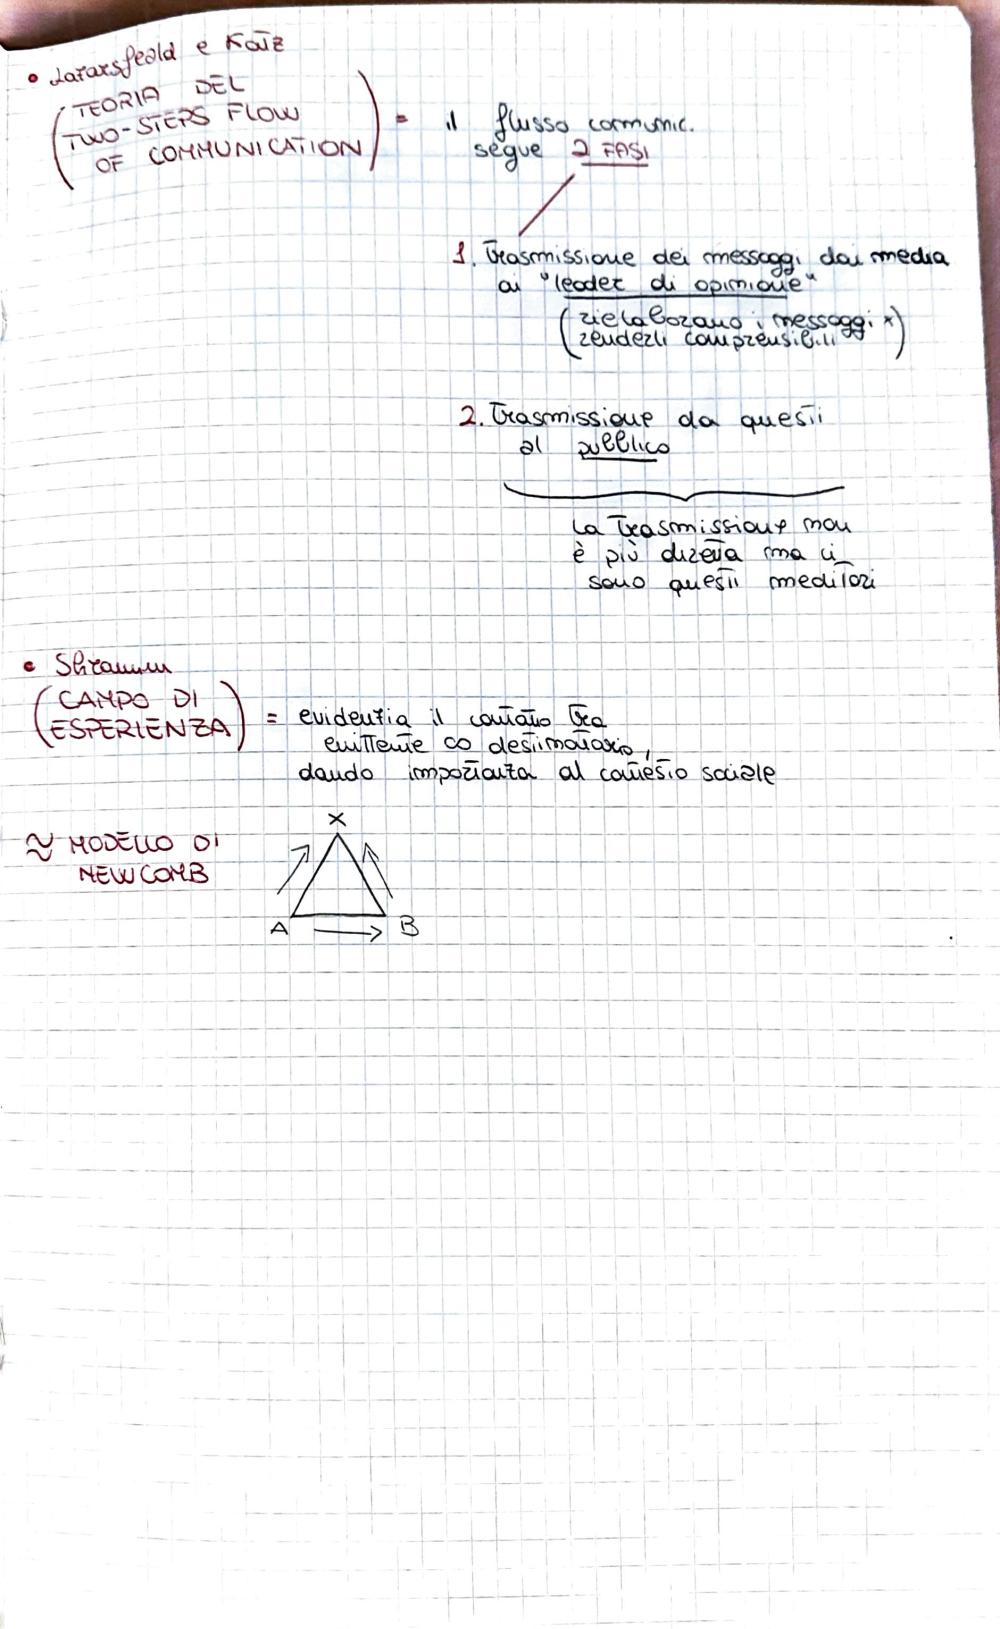 • Lazarsfeald e Katz
(TEORIA DEL
TWO-STEPS FLOW
OF COMMUNICATION)
= il flusso comunic.
segue 2 FASI
1. Trasmissione dei messaggi dai media
ai "leader di opinione"
(rielaborano i messaggi x
renderli comprensibili)
2. Trasmissione da questi
al pubblico
la trasmissione non
è più diretta ma ci
sono questi meditori
• Shramm
(CAMPO DI
ESPERIENZA)
= evidenzia il contatto tra
emittente co destinatario,
dando importanza al contesto sociale
≈ MODELLO DI
NEWCOMB
X
A B